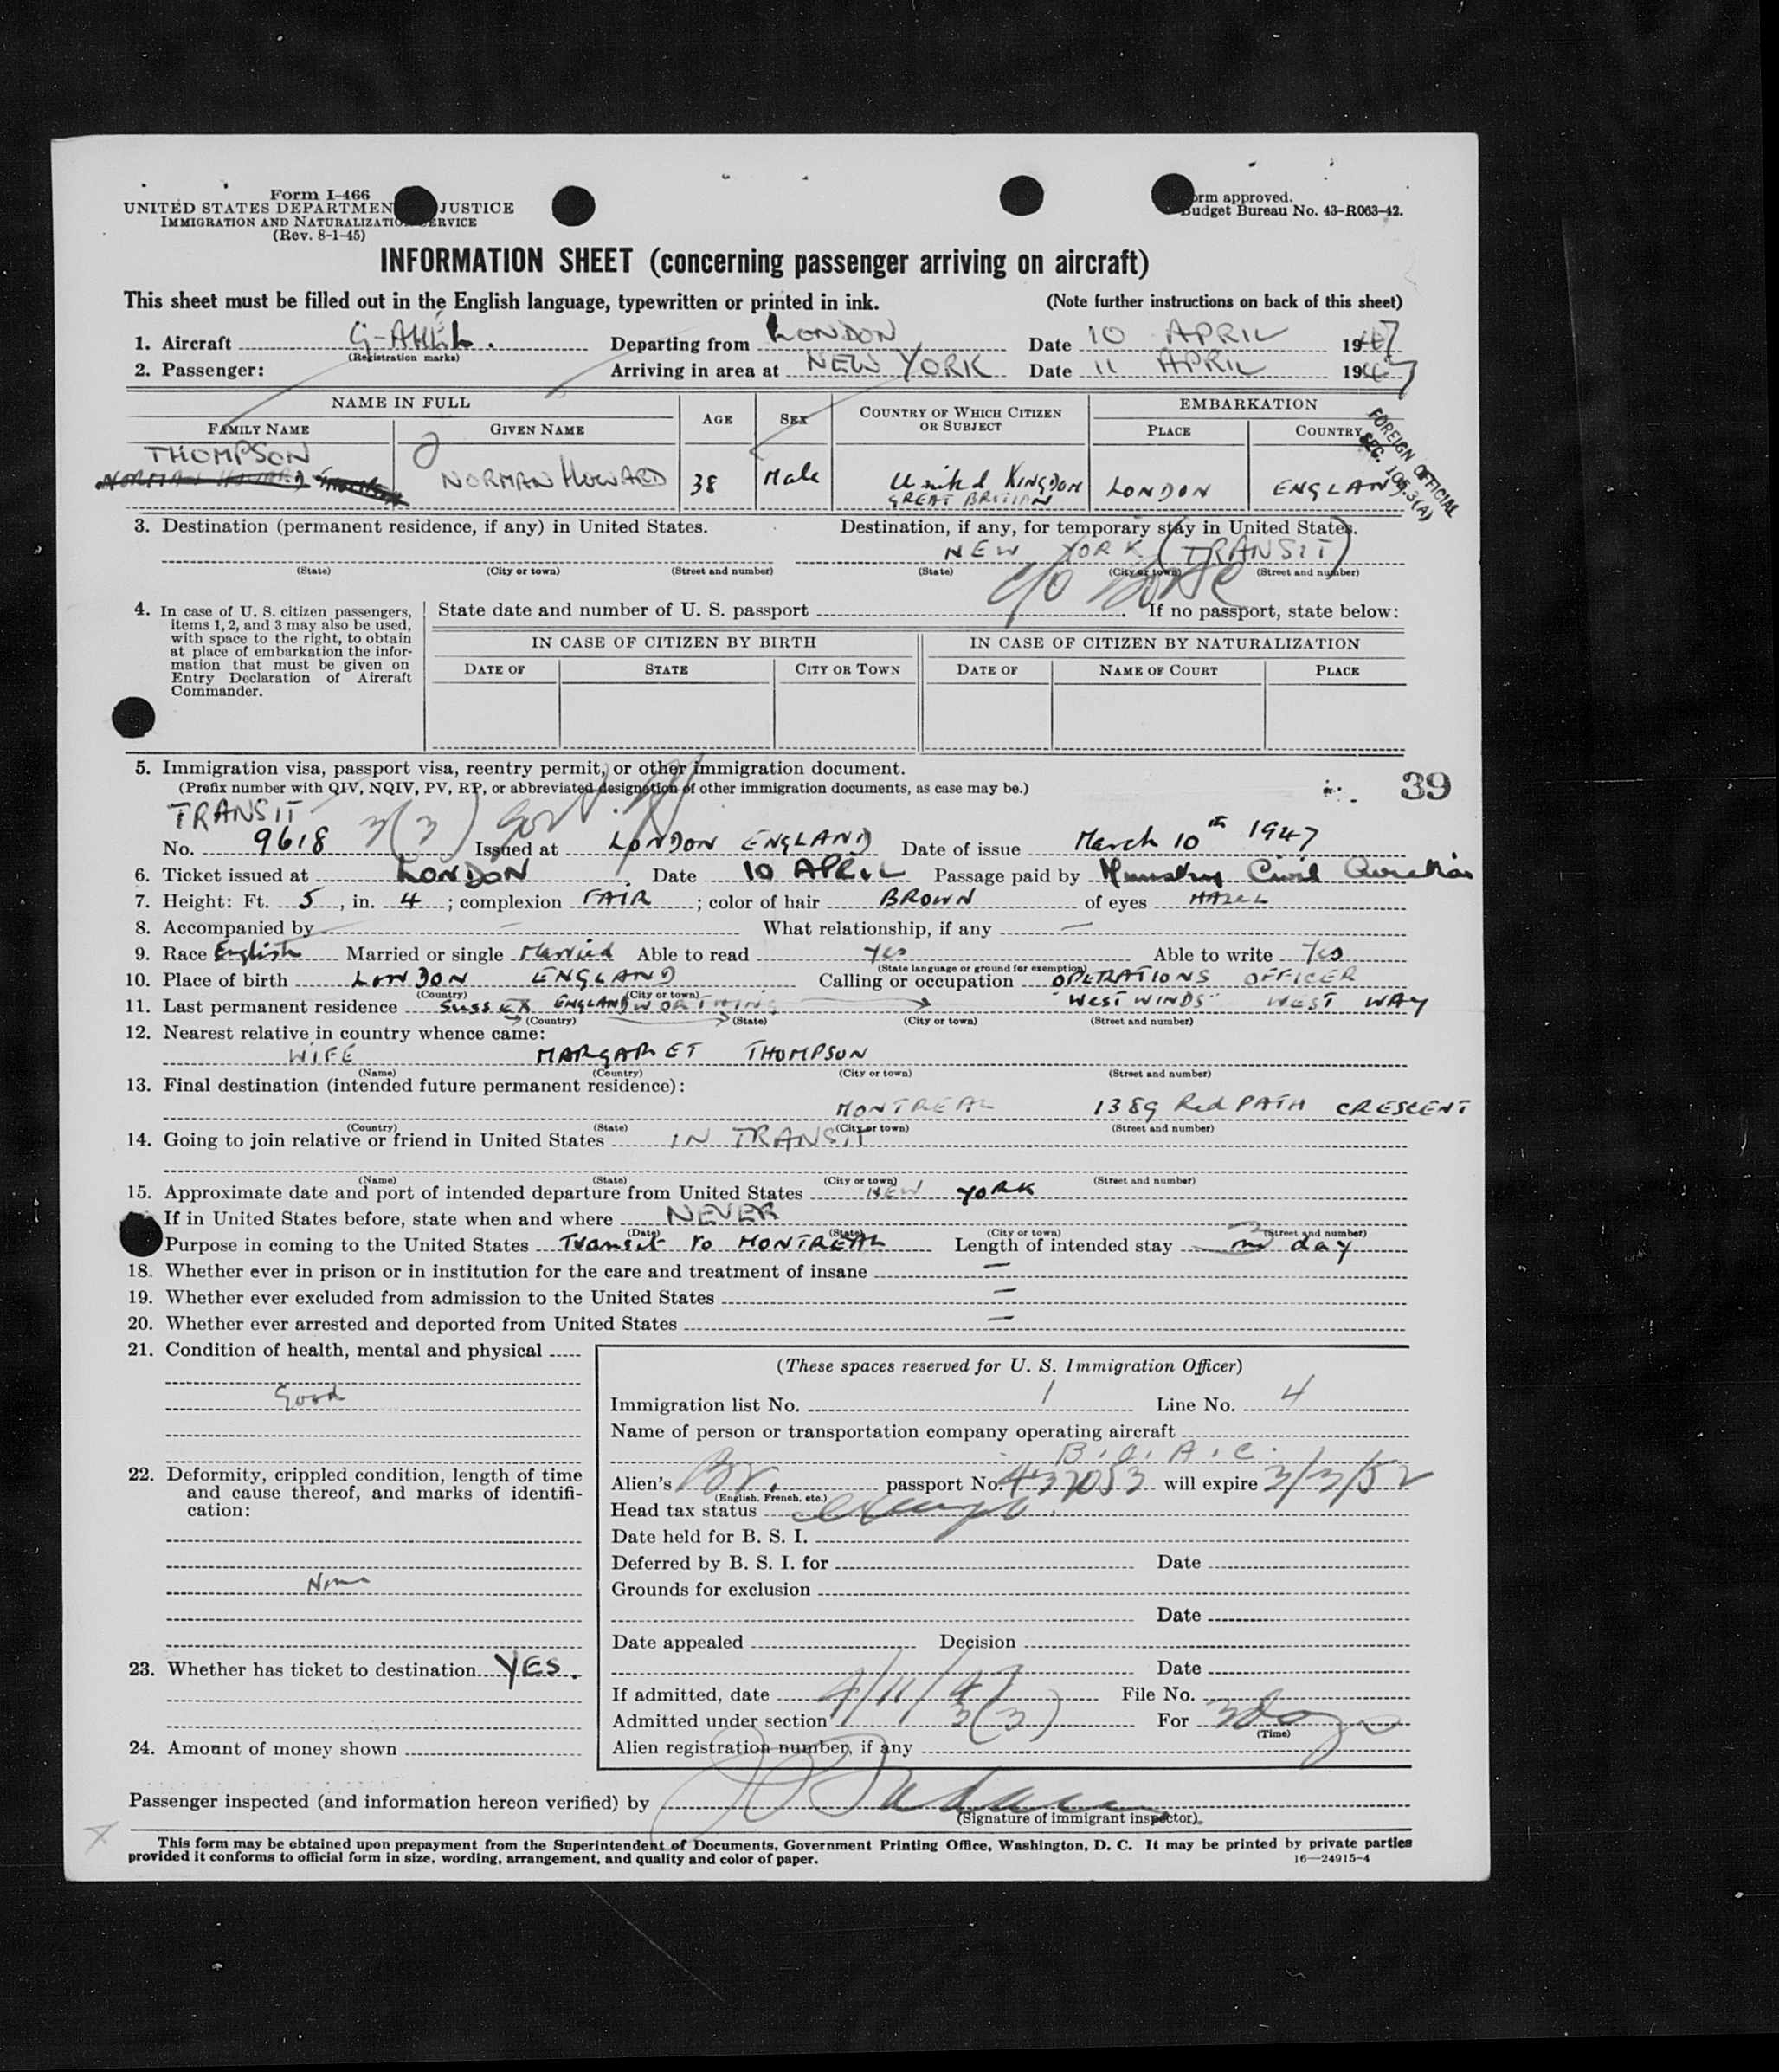 Form I-466
UNITED STATES DEPARTMEN JUSTICE
IMMIGRATION AND NATURALIZATIO SERVICE
(Rev. 8-1-45)
orm approved.
Budget Bureau No. 43-R063-42.
INFORMATION SHEET (concerning passenger arriving on aircraft)
This sheet must be filled out in the English language, typewritten or printed in ink. (Note further instructions on back of this sheet)
1. Aircraft Departing from LONDON Date 10 APRIL 1947
(Registration marks)
2. Passenger: Arriving in area at NEW YORK Date 11 APRIL 1947
NAME IN FULL AGE SEX COUNTRY OF WHICH CITIZEN OR SUBJECT EMBARKATION
FAMILY NAME GIVEN NAME PLACE COUNTRY
THOMPSON
NORMAN HOWARD 38 Male United KINGDOM LONDON ENGLAND
GREAT BRITIAN
FOREIGN OFFICIAL
SEC. 105.3(A)
3. Destination (permanent residence, if any) in United States. Destination, if any, for temporary stay in United States.
NEW YORK (TRANSIT)
(State) (City or town) (Street and number) (State) (City or town) (Street and number)
c/o BOAC
4. In case of U. S. citizen passengers, items 1, 2, and 3 may also be used, with space to the right, to obtain at place of embarkation the information that must be given on Entry Declaration of Aircraft Commander.
State date and number of U. S. passport If no passport, state below:
IN CASE OF CITIZEN BY BIRTH IN CASE OF CITIZEN BY NATURALIZATION
DATE OF STATE CITY OR TOWN DATE OF NAME OF COURT PLACE
5. Immigration visa, passport visa, reentry permit, or other immigration document.
(Prefix number with QIV, NQIV, PV, RP, or abbreviated designation of other immigration documents, as case may be.)
39
TRANSIT 3(3) Gov.
No. 9618 Issued at LONDON ENGLAND Date of issue March 10th 1947
6. Ticket issued at LONDON Date 10 APRIL Passage paid by Ministry Civil Aviation
7. Height: Ft. 5, in. 4; complexion FAIR; color of hair BROWN of eyes HAZEL
8. Accompanied by — What relationship, if any —
9. Race English Married or single Married Able to read Yes Able to write Yes
(State language or ground for exemption)
10. Place of birth LONDON ENGLAND Calling or occupation OPERATIONS OFFICER
(Country) (City or town)
11. Last permanent residence SUSSEX ENGLAND WORTHING "WEST WINDS" WEST WAY
(Country) (State) (City or town) (Street and number)
12. Nearest relative in country whence came:
WIFE MARGARET THOMPSON
(Name) (Country) (City or town) (Street and number)
13. Final destination (intended future permanent residence):
MONTREAL 1389 Red PATH CRESCENT
(Country) (State) (City or town) (Street and number)
14. Going to join relative or friend in United States IN TRANSIT
(Name) (State) (City or town) (Street and number)
15. Approximate date and port of intended departure from United States NEW YORK
If in United States before, state when and where NEVER
(Date) (State) (City or town) (Street and number)
Purpose in coming to the United States Transit to MONTREAL Length of intended stay day
18. Whether ever in prison or in institution for the care and treatment of insane —
19. Whether ever excluded from admission to the United States —
20. Whether ever arrested and deported from United States —
21. Condition of health, mental and physical
Good
22. Deformity, crippled condition, length of time and cause thereof, and marks of identification:
None
23. Whether has ticket to destination YES.
24. Amount of money shown
(These spaces reserved for U. S. Immigration Officer)
Immigration list No. 1 Line No. 4
Name of person or transportation company operating aircraft
B.O.A.C.
Alien's Br. passport No. 437053 will expire 3/3/52
(English, French, etc.)
Head tax status exempt
Date held for B. S. I.
Deferred by B. S. I. for Date
Grounds for exclusion
Date
Date appealed Decision
Date
If admitted, date 4/11/47 File No.
Admitted under section 3(3) For 3 days
(Time)
Alien registration number, if any
Passenger inspected (and information hereon verified) by
(Signature of immigrant inspector).
This form may be obtained upon prepayment from the Superintendent of Documents, Government Printing Office, Washington, D. C. It may be printed by private parties
provided it conforms to official form in size, wording, arrangement, and quality and color of paper. 16—24915-4